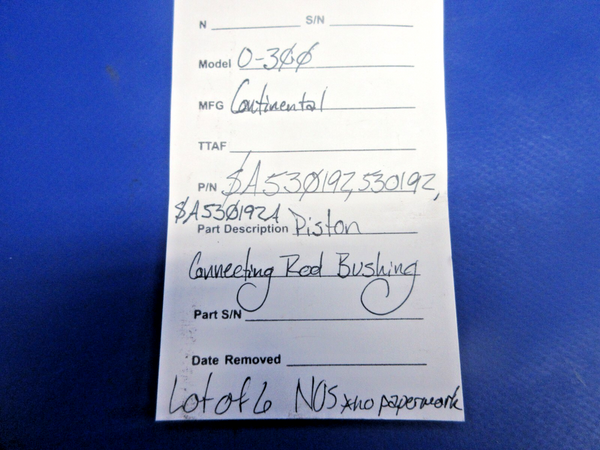 N S/N
Model O-300
MFG Continental
TTAF
P/N SA530192, 530192,
SA530192A
Part Description Piston
Connecting Rod Bushing
Part S/N
Date Removed
Lot of 6 NOS *no paperwork